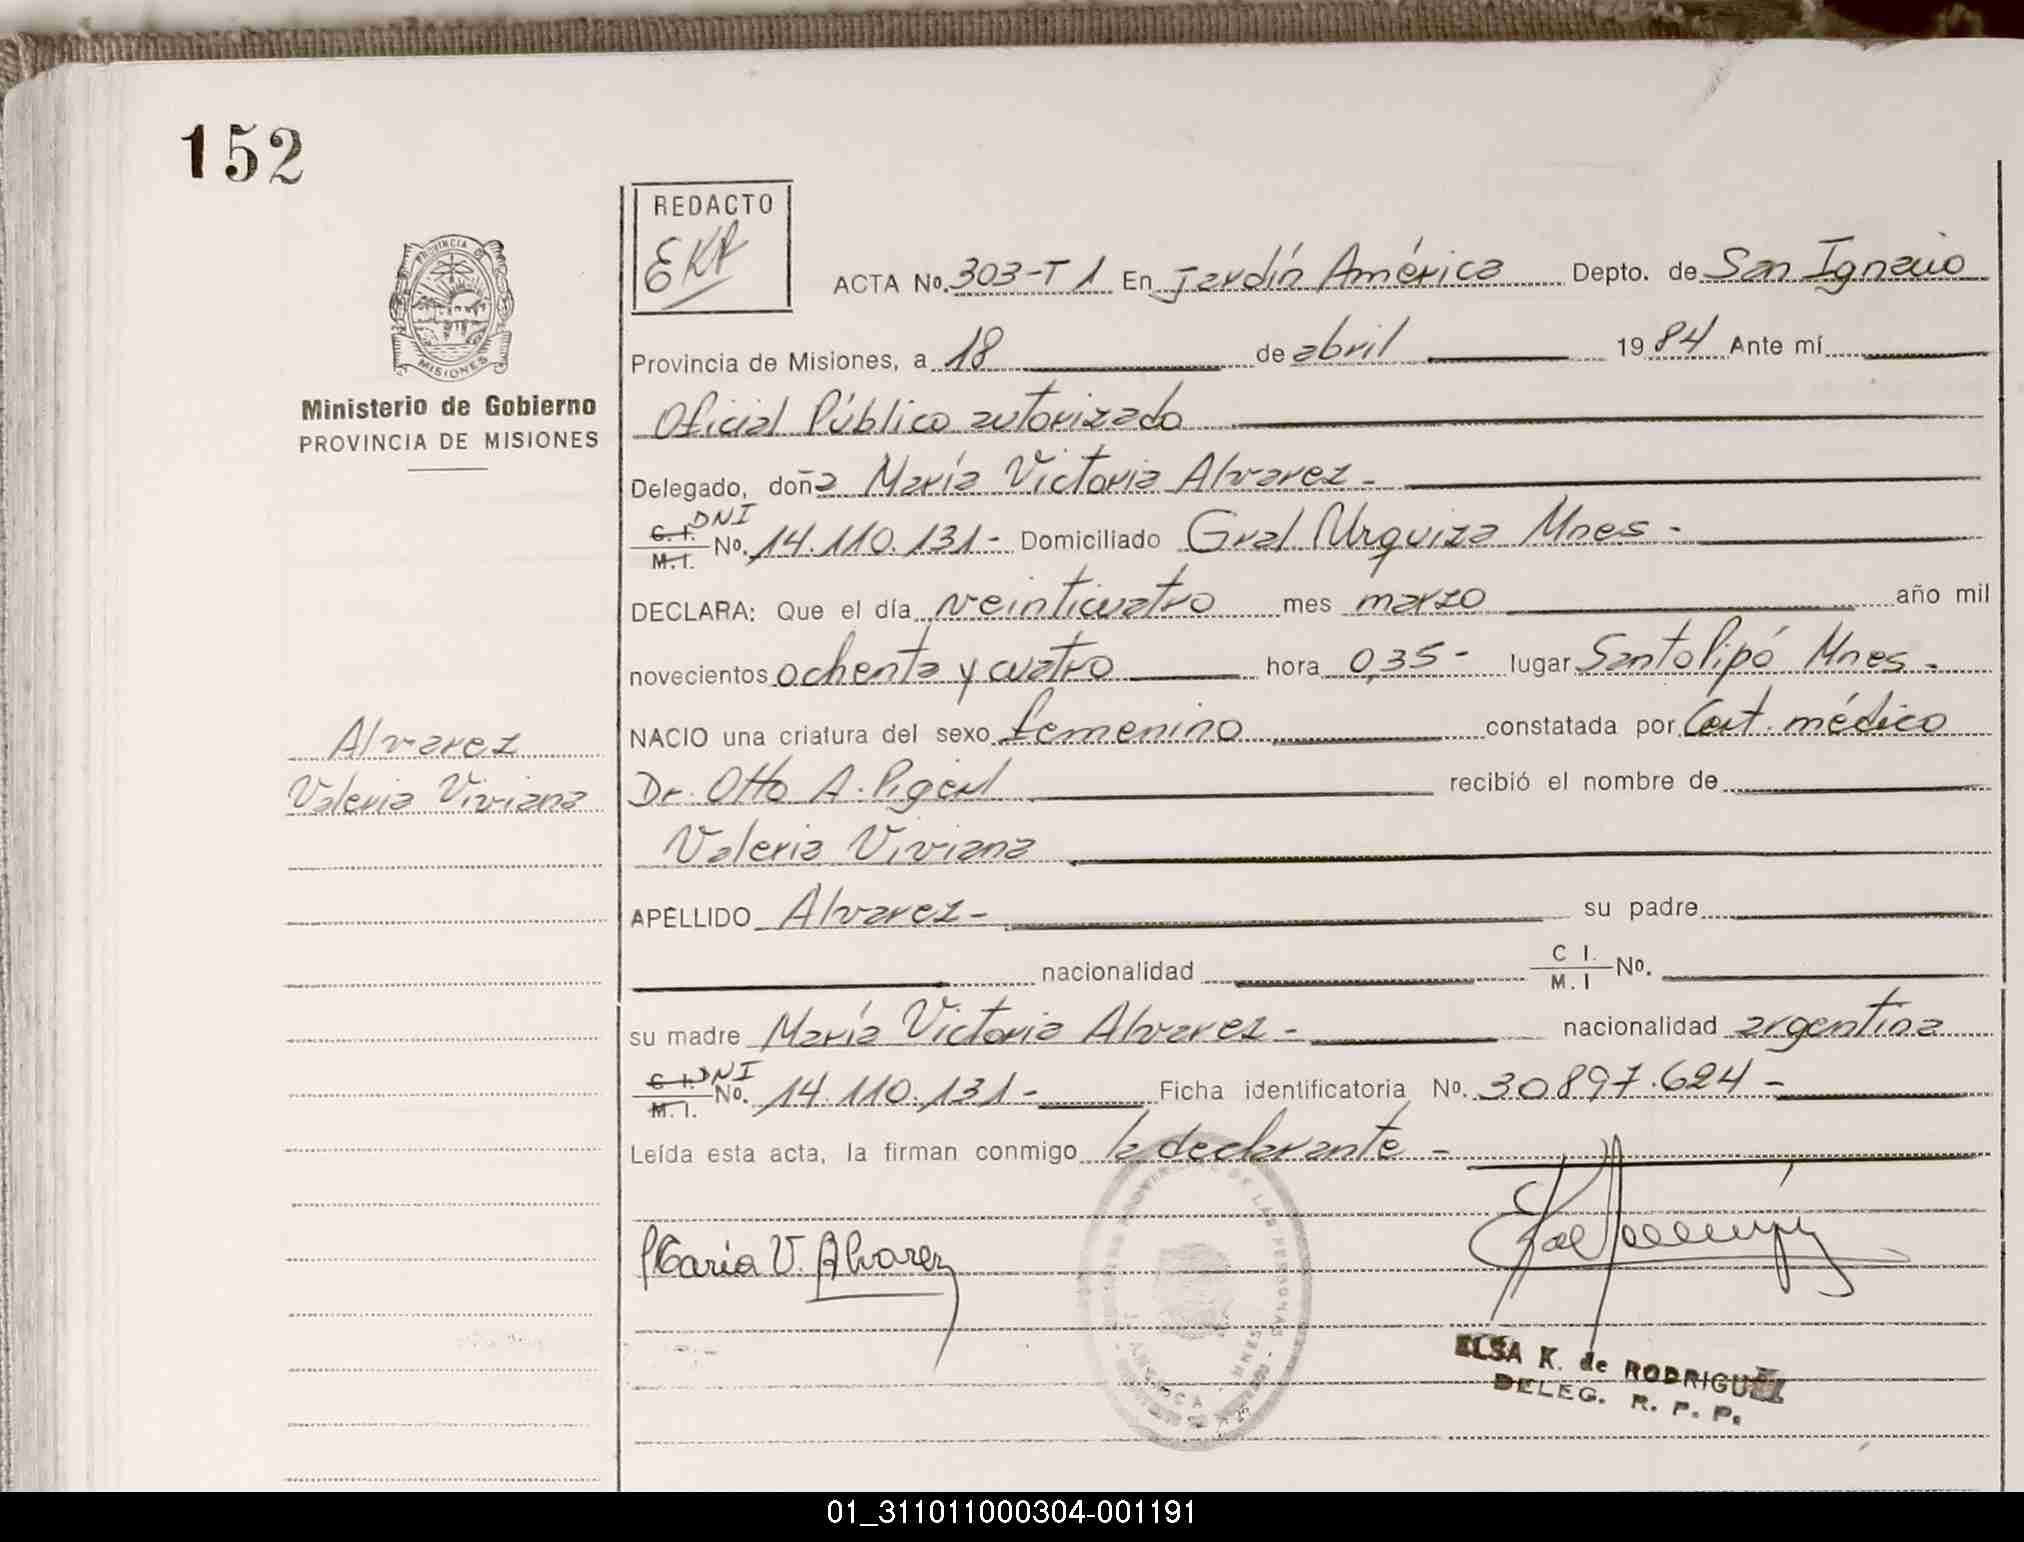 152
REDACTO
EKR
ACTA No. 303-T 1 En Jardín América Depto. de San Ignacio
PROVINCIA DE
MISIONES
Provincia de Misiones, a 18 de abril 1984 Ante mí
Ministerio de Gobierno
PROVINCIA DE MISIONES
Oficial Público autorizado
Delegado, doña María Victoria Alvarez-
C.I. DNI
M.I. No. 14.110.131- Domiciliado Gral Urquiza Mnes-
DECLARA: Que el día veinticuatro mes marzo año mil
novecientos ochenta y cuatro hora 0,35- lugar Santo Pipó Mnes-
NACIO una criatura del sexo femenino constatada por Cert. médico
Alvarez
Valeria Viviana
Dr. Otto A. recibió el nombre de
Valeria Viviana
APELLIDO Alvarez- su padre
nacionalidad C I. M. I No.
su madre María Victoria Alvarez- nacionalidad argentina
C I. DNI
M. I. No. 14.110.131- Ficha identificatoria No. 30897.624-
Leída esta acta, la firman conmigo la declarante-
DE LAS PERSONAS
MNES
María V. Alvarez
ELSA K. de RODRIGUEZ
DELEG. R. P. P.
01_311011000304-001191